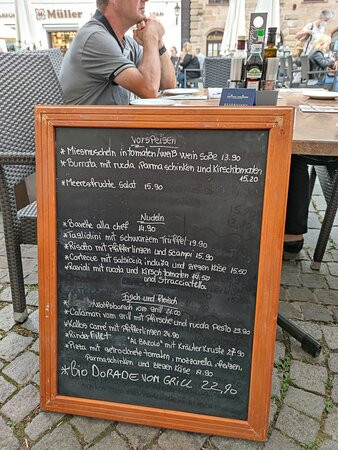 Müller
Vorspeisen
* Miesmuscheln in tomaten/weiß wein soße 13.90
* Burrata mit rucola, Parmaschinken und Kirschtomaten
15,20
* Meeresfruchte Salat 15.90
Nudeln
* Bavette alla chef 14.90
* Taglidini mit schwarzem Trüffel 19.90
* Risotto mit Pfifferlingen und Scampi 15.90
* Cortecce mit salsiccia induja und zregen Käse 15.50
* Ravioli mit rucola und Kirsch tomaten 14.50
und Stracciatella
Fisch und Fleisch
* Wolfsbarsch vom grill
* Calamari vom grill mit Pfirsiche und rucola Pesto 23.90
* Kalbs carré mit Pfifferlingen 24.90
* Rinder Fillet "AL BAROLO" mit Kräuter Kruste 27.90
* Pizza mit getrocknete tomaten, mozzarella,
Parmaschinken und zregen Käse 14.90
* Bio DORADE VOM GRILL 22,90